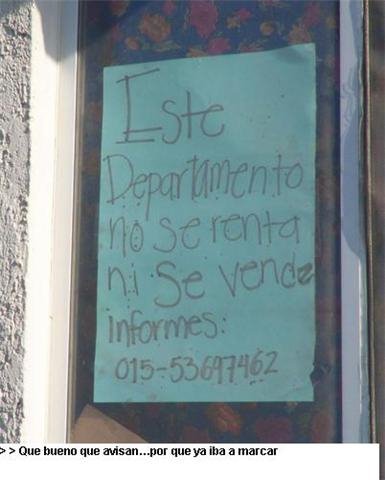 Este
Departamento
no se renta
ni se vende
informes:
015-53697462
> > Que bueno que avisan...por que ya iba a marcar